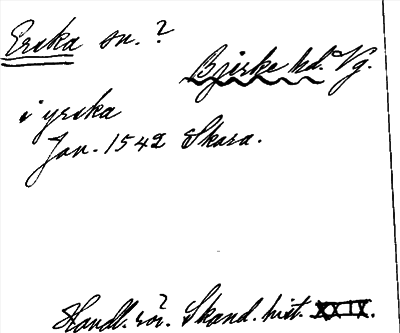 Ereka sn. ?
Bjerke hd. Vg.
i yreka
Jan. 1542 Skara.
Handl. rör. Skand. hist. XXIX.